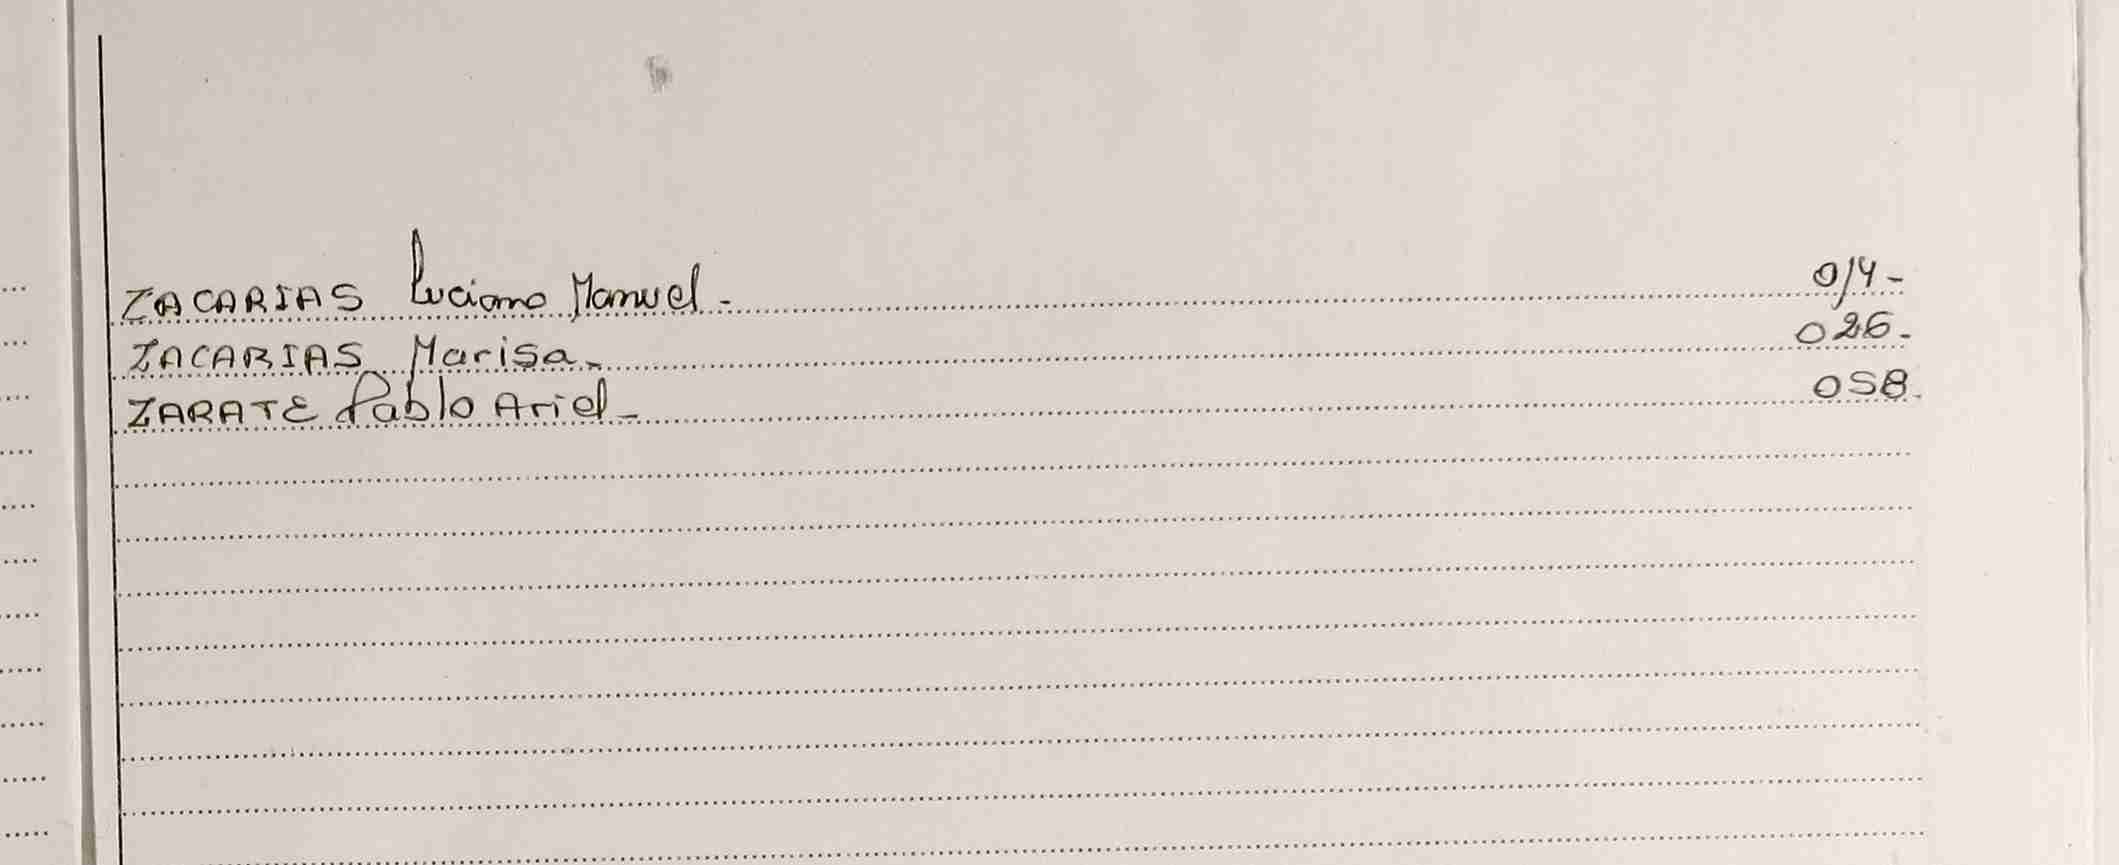 ZACARIAS Luciano Manuel - 014 -
ZACARIAS Marisa - 026.
ZARATE Pablo Ariel - 058.